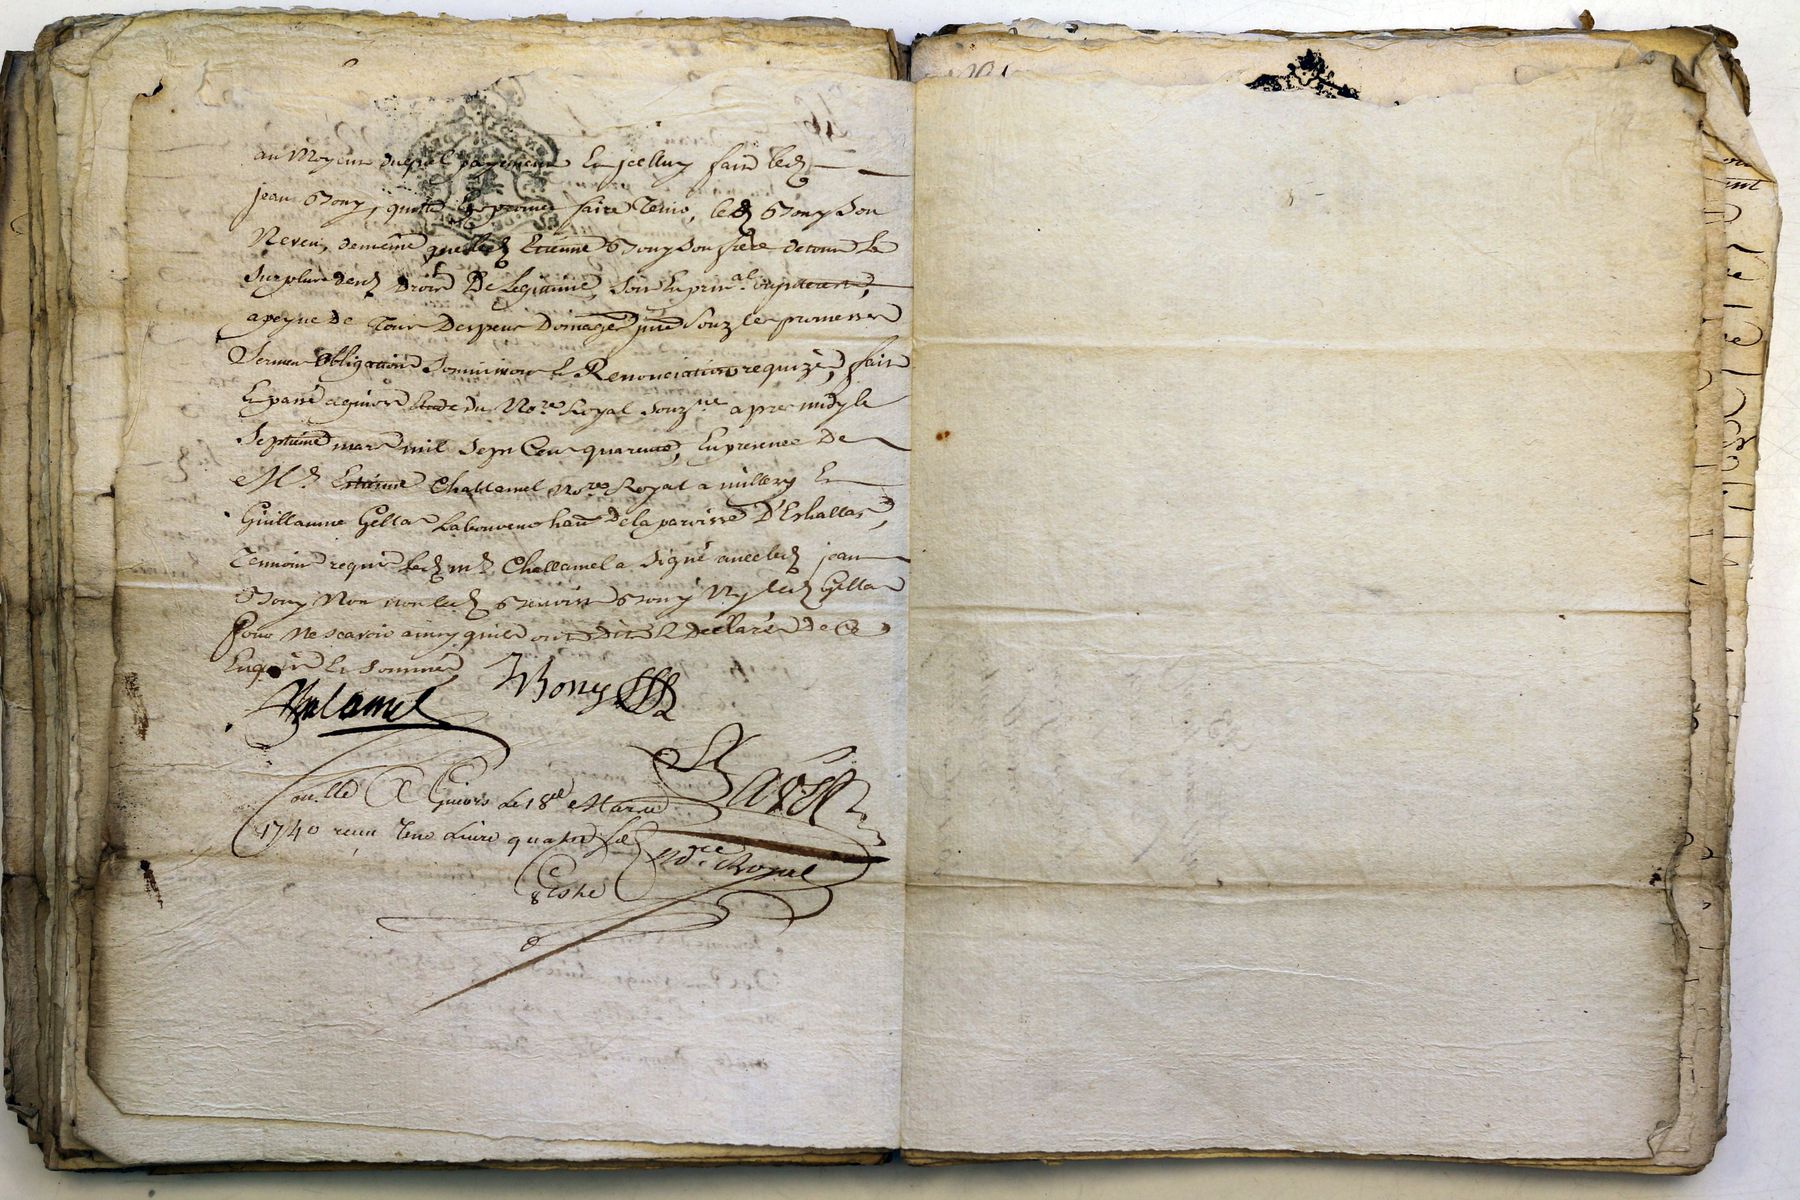 au Moyend duquel payement Et jcelluy fait led
jean Bony, quitte Et promet faire Tenir, led Bony Son
Neveu, demême que led Etienne Bony Son frere detout Le
Surplus desd droits De Legitime, Soit En prin.al ou jnterest,
apeyne de Tous Despens Domages jnt Souz les promesses
Serment Obligation Soumission & Renonciation requize, fait
Et passé agivors Etude du No.re Royal Souz.né apres midy le
Septieme mars mil Sept Cens quarente, En presence de
M.e Estienne Challamel No.re Royal a millery Et
Guillaume Gella Laboureur hant De la paroisse D'Eschallas,
Temoins requis led m.e Challamel a Signé avec led jean
Bony Non led Benoist Bony Ny led Gella
Pour Ne Scavoir ainsy quils ont dit & declaré de Ce
Enquis Et Sommés
Chalamel JBony
Bavet
Con.llé A Givors Le 18e Mars
1740 receu Une Livre quatre sols
No.re Royal